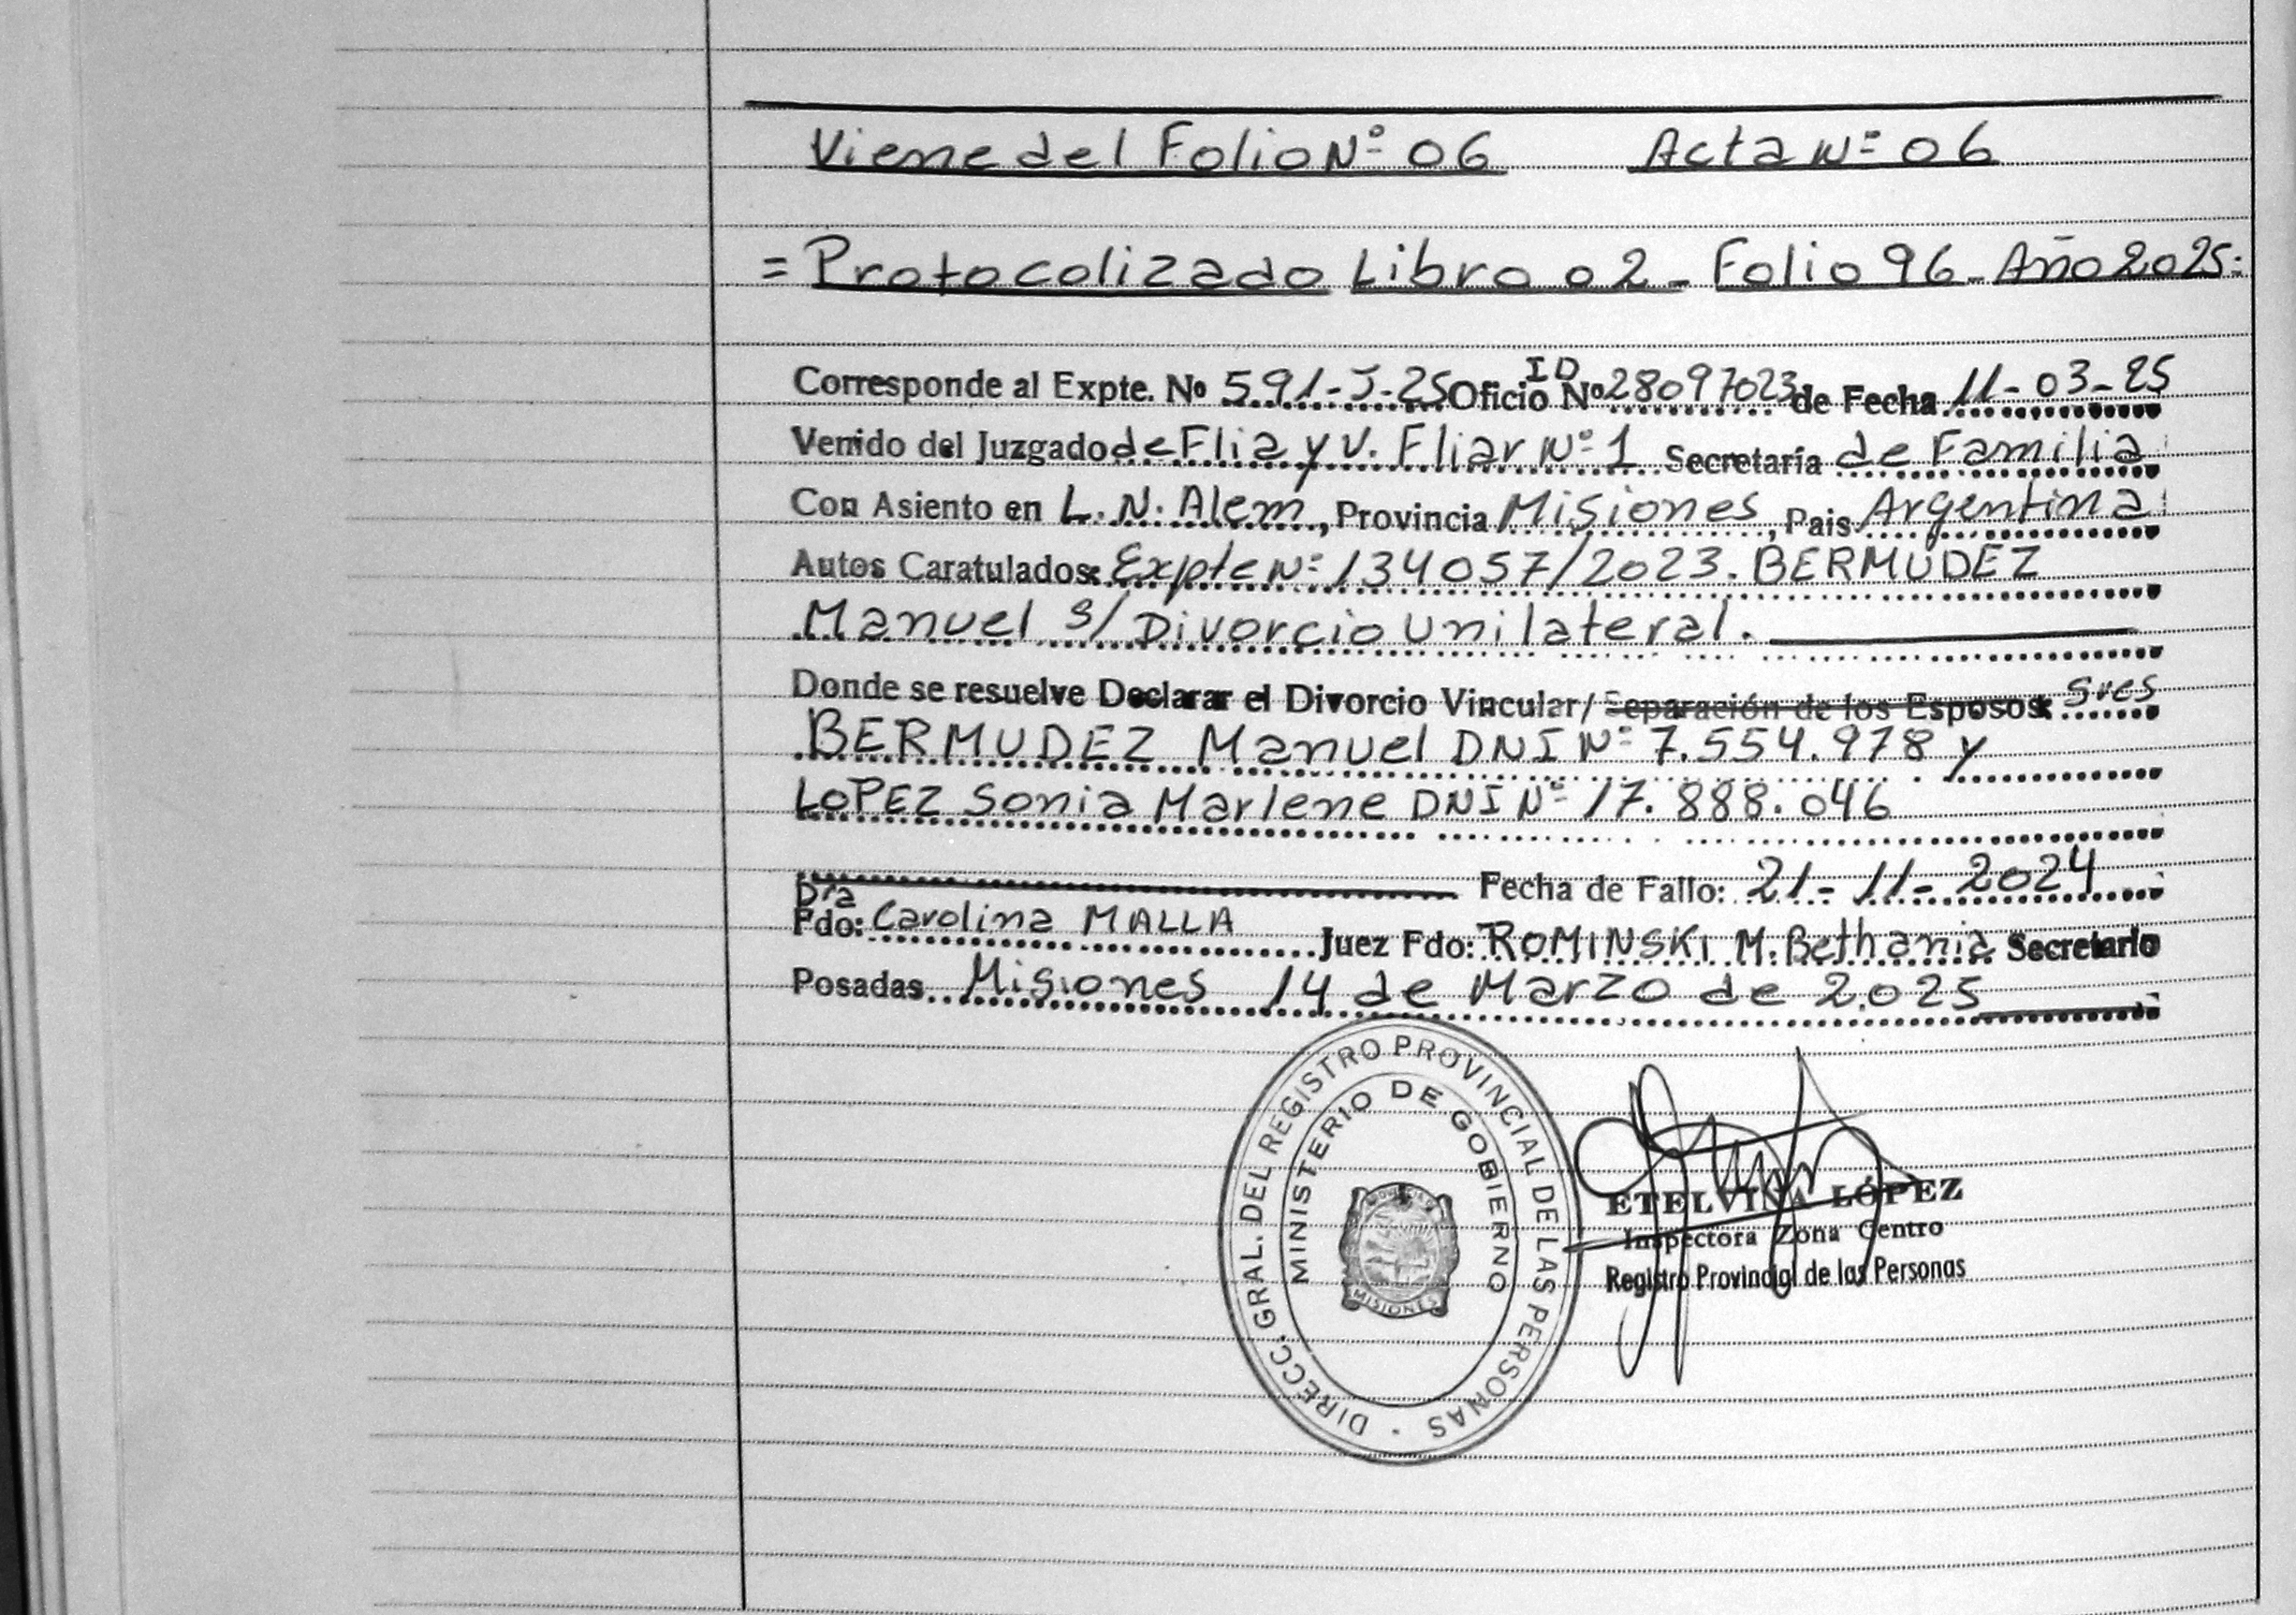 Viene del Folio Nº 06 Acta Nº 06
= Protocolizado Libro 02 - Folio 96 - Año 2025:
Corresponde al Expte. Nº 591-J-25 Oficio ID Nº 28097023 de Fecha 11-03-25
Venido del Juzgado de Flia y V. Fliar Nº 1 Secretaría de Familia
Con Asiento en L. N. Alem, Provincia Misiones, Pais Argentina
Autos Caratulados: Expte Nº 134057/2023. BERMUDEZ
Manuel s/ Divorcio Unilateral.
Donde se resuelve Declarar el Divorcio Vincular/ Separación de los Esposos: Sres
BERMUDEZ Manuel DNI Nº 7.554.978 y
LOPEZ Sonia Marlene DNI Nº 17.888.046
Fecha de Fallo: 21-11-2024
Dra
Fdo: Carolina MALLA Juez Fdo: ROMINSKI M. Bethania Secretario
Posadas Misiones 14 de Marzo de 2.025
DIRECC. GRAL. DEL REGISTRO PROVINCIAL DE LAS PERSONAS
MINISTERIO DE GOBIERNO
MISIONES
ETELVINA LÓPEZ
Inspectora Zona Centro
Registro Provincial de las Personas